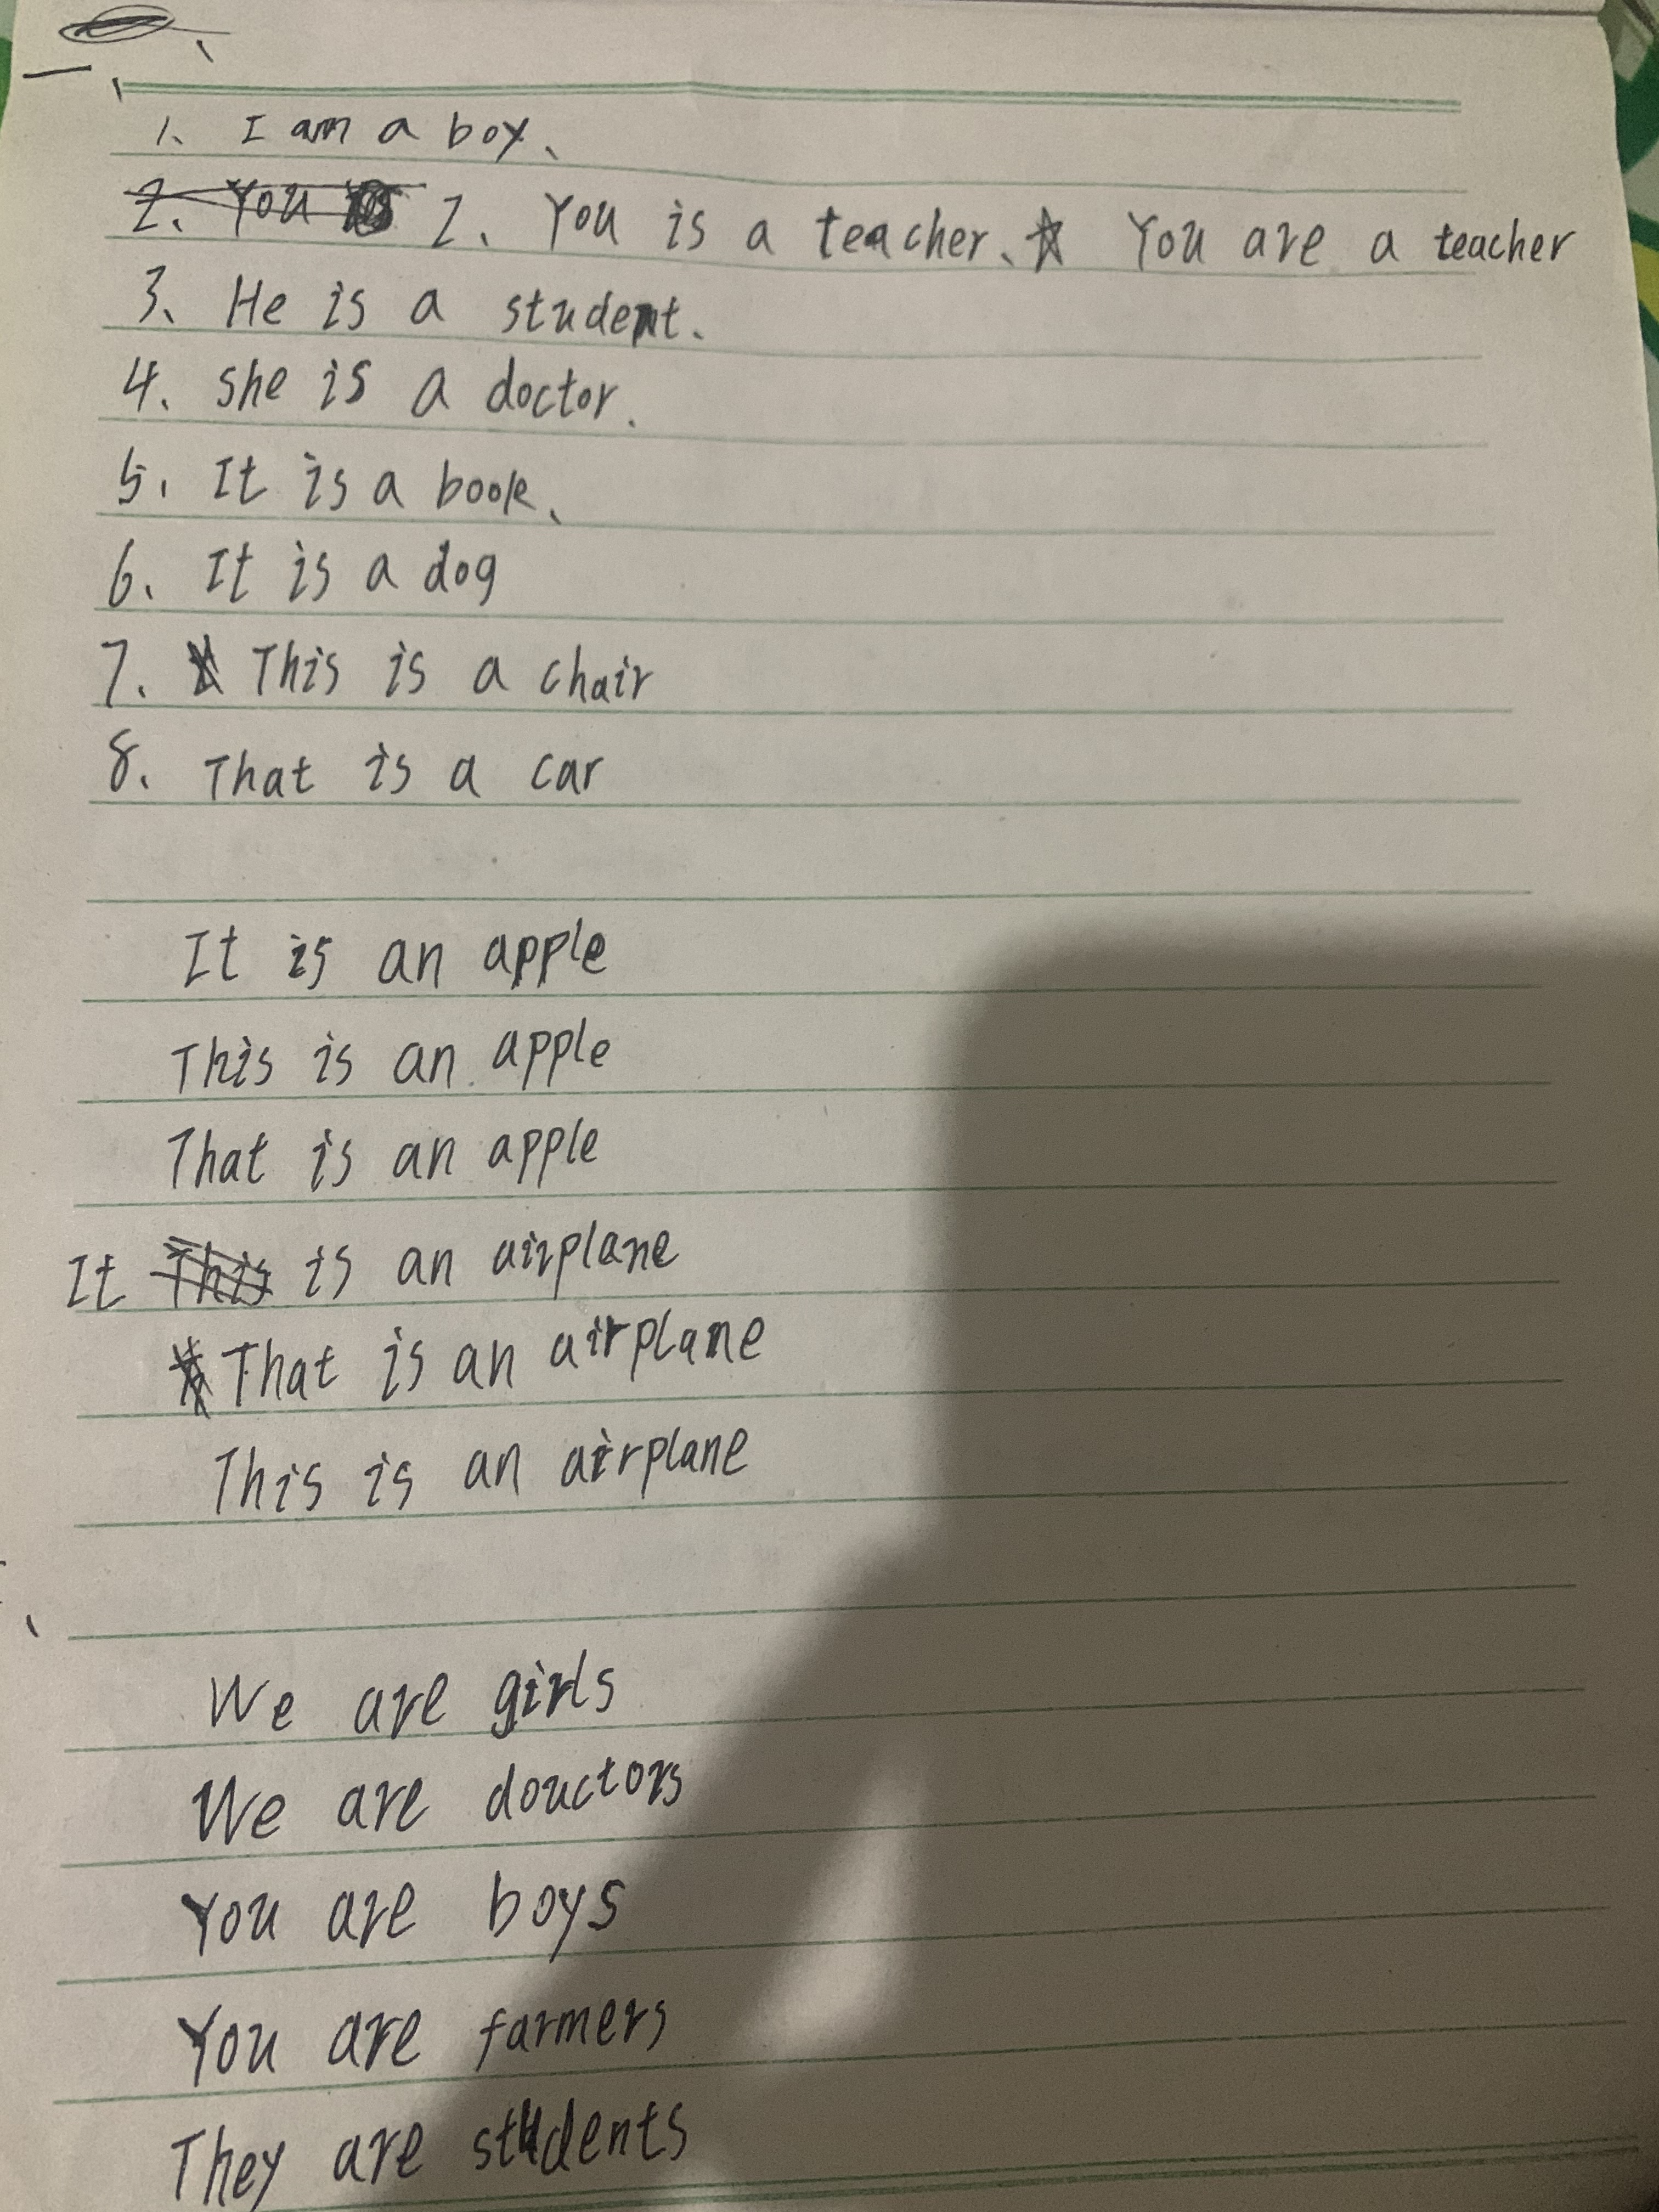 一、
1、 I am a boy、
2、 You is 2、 You is a teacher、☆ You are a teacher
3、 He is a student.
4、 she is a doctor.
5、 It is a book、
6、 It is a dog
7、 This is a chair
8、 That is a car
It is an apple
This is an apple
That is an apple
It This is an airplane
That is an airplane
This is an airplane
We are girls
We are douctors
You are boys
You are farmers
They are students